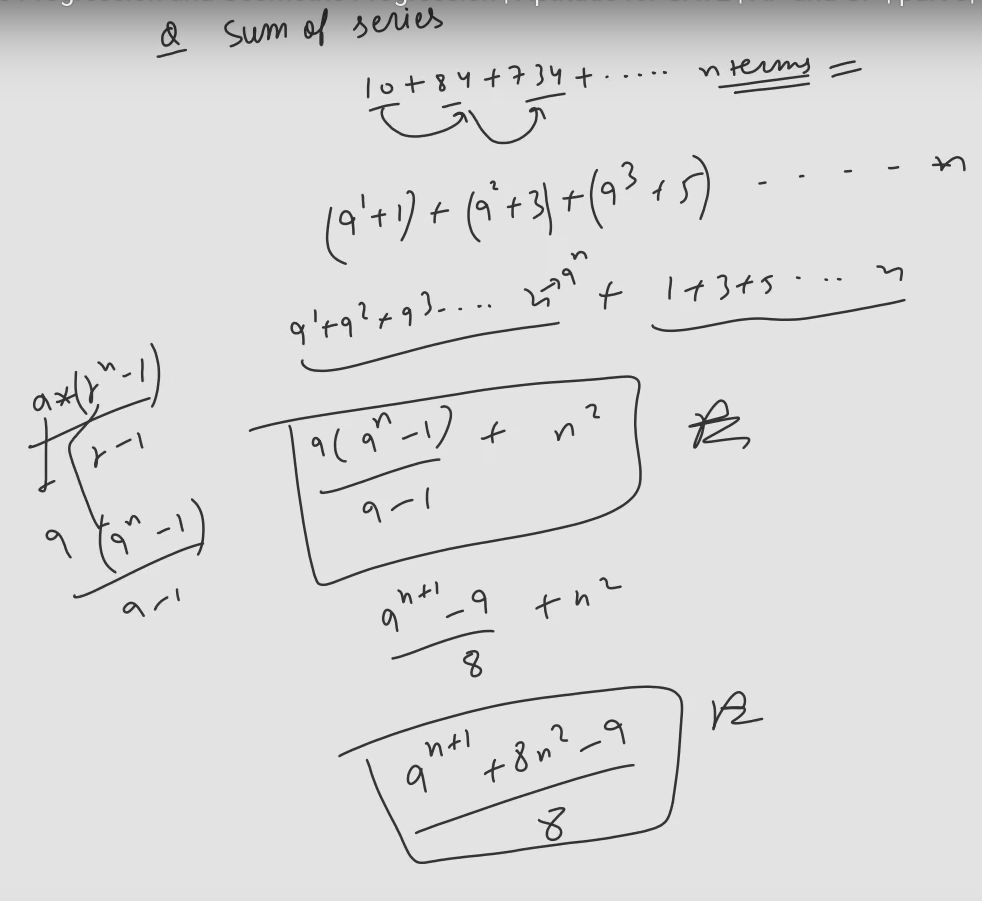 Q Sum of series
10 + 84 + 734 + ...... n terms =
(9¹+1) + (9²+3) + (9³+5) - - - - - n
9¹+9²+9³ ..... 9ⁿ + 1+3+5 ..... n
a*(rⁿ-1)
r-1
9(9ⁿ-1) + n²
9-1
9(9ⁿ-1)
9-1
9ⁿ⁺¹-9 + n²
8
9ⁿ⁺¹+8n²-9
8